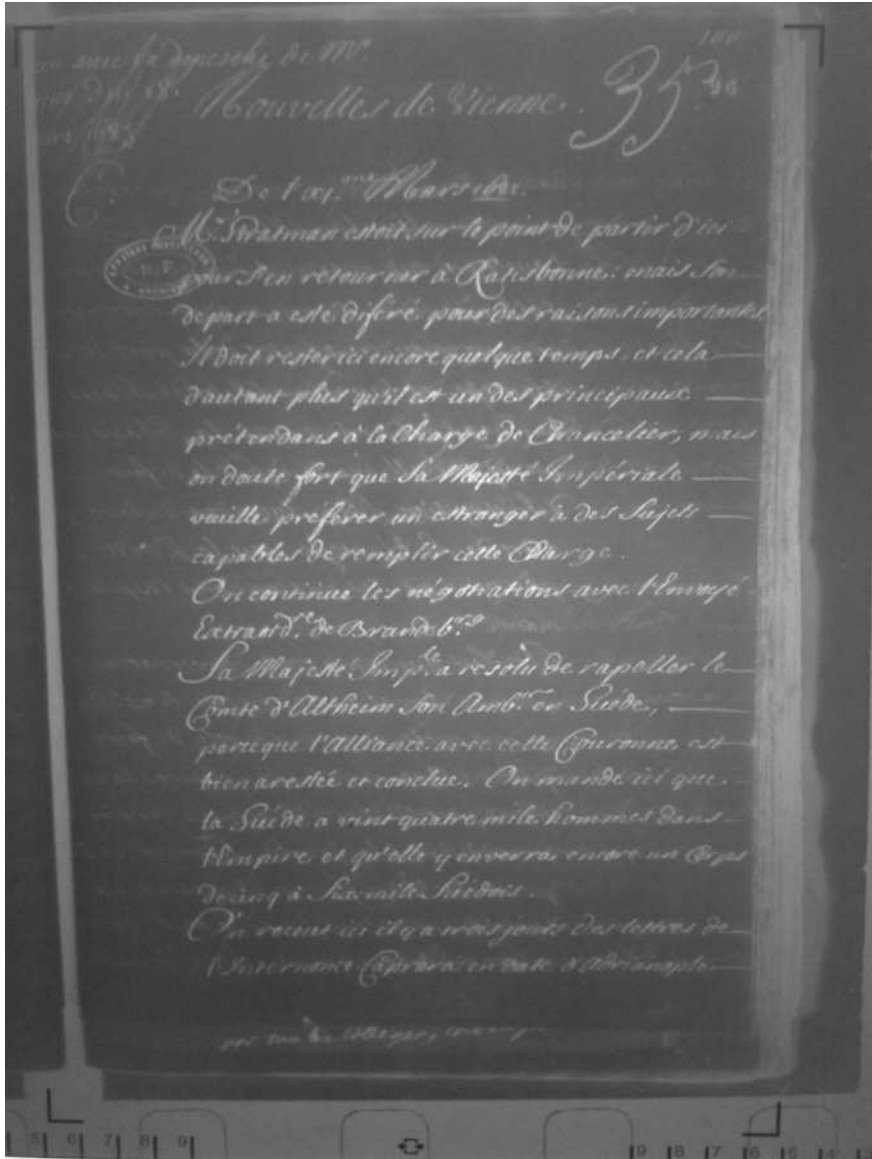 avec sa depesche de Mr.
Nouvelles de Vienne.
100
35
96
De l'xi.me Mars
Mr. Stratman estoit sur le point de partir d'ici
pour s'en retourner à Ratisbonne: mais son
depart a esté diferé pour des raisons importantes
Il doit rester ici encore quelque temps et cela
d'autant plus qu'il est un des principaux
prétendans à la Charge de Chancelier, mais
on doute fort que Sa Majesté Impériale
veuille préferer un estranger à des Sujets
capables de remplir cette Charge.
On continue les négotiations avec l'Envoyé
Extraord.re de Brandeb.rg
Sa Majesté Imp.le a resolu de rapeller le
Comte d'Altheim Son Amb.eur en Suéde,
parceque l'Alliance avec cette Couronne est
bien arestée et conclue. On mande ici que
la Suéde a vint quatre mile hommes dans
l'Empire et qu'elle y enverra encore un Corps
de cinq à Six mile Suédois.
On receut ici il y a trois jours des lettres de
l'Internonce Caprara en date d'Adrianople
R. F.
5 6 7 8 9
9 8 7 6 5 4